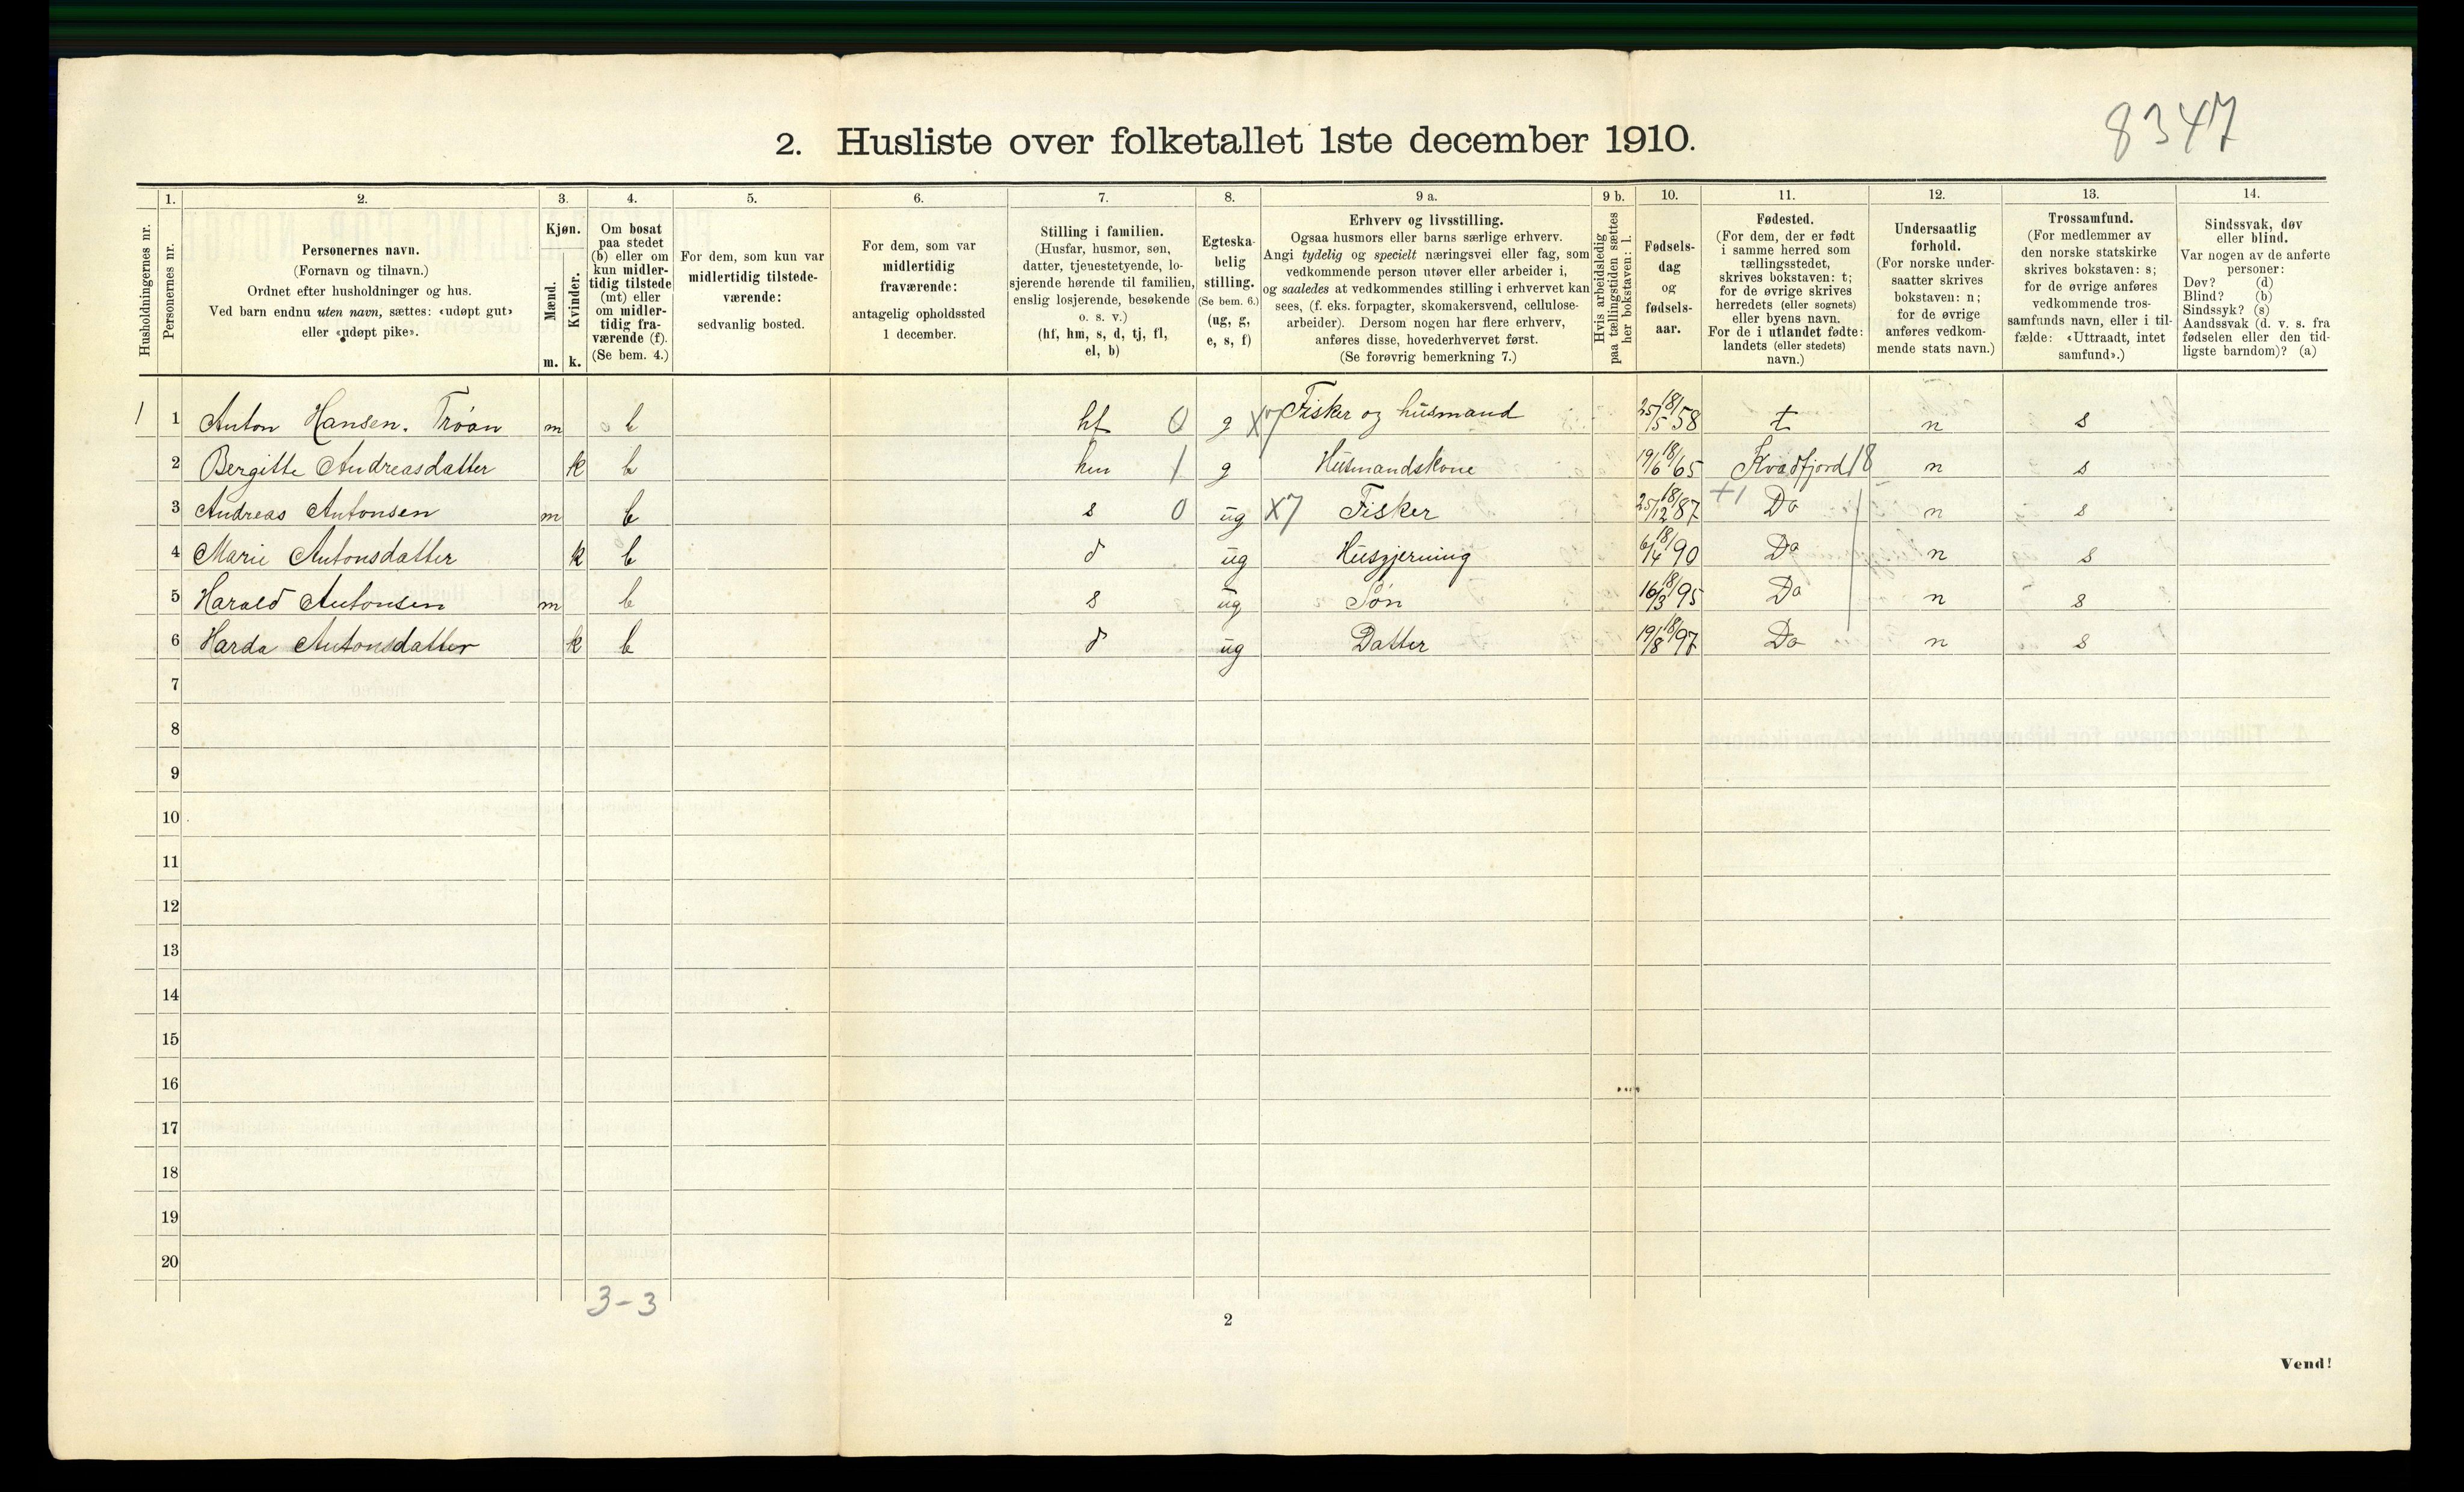 8347
2. Husliste over folketallet 1ste december 1910.
Husholdningernes nr.
1. Personernes nr.
2. Personernes navn.
(Fornavn og tilnavn.)
Ordnet efter husholdninger og hus.
Ved barn endnu uten navn, sættes: «udøpt gut»
eller «udøpt pike».
3. Kjøn.
Mænd. m.
Kvinder. k.
4. Om bosat
paa stedet
(b) eller om
kun midler-
tidig tilstede
(mt) eller
om midler-
tidig fra-
værende (f).
(Se bem. 4.)
5. For dem, som kun var
midlertidig tilstede-
værende:
sedvanlig bosted.
6. For dem, som var
midlertidig
fraværende:
antagelig opholdssted
1 december.
7. Stilling i familien.
(Husfar, husmor, søn,
datter, tjenestetyende, lo-
sjerende hørende til familien,
enslig losjerende, besøkende
o. s. v.)
(hf, hm, s, d, tj, fl,
el, b)
8. Egteska-
belig
stilling.
(Se bem. 6.)
(ug, g,
e, s, f)
9 a. Erhverv og livsstilling.
Ogsaa husmors eller barns særlige erhverv.
Angi tydelig og specielt næringsvei eller fag, som
vedkommende person utøver eller arbeider i,
og saaledes at vedkommendes stilling i erhvervet kan
sees, (f. eks. forpagter, skomakersvend, cellulose-
arbeider). Dersom nogen har flere erhverv,
anføres disse, hovederhvervet først.
(Se forøvrig bemerkning 7.)
9 b. Hvis arbeidsledig
paa tællingstiden sættes
her bokstaven: l.
10. Fødsels-
dag
og
fødsels-
aar.
11. Fødested.
(For dem, der er født
i samme herred som
tællingsstedet,
skrives bokstaven: t;
for de øvrige skrives
herredets (eller sognets)
eller byens navn.
For de i utlandet fødte:
landets (eller stedets)
navn.)
12. Undersaatlig
forhold.
(For norske under-
saatter skrives
bokstaven: n;
for de øvrige
anføres vedkom-
mende stats navn.)
13. Trossamfund.
(For medlemmer av
den norske statskirke
skrives bokstaven: s;
for de øvrige anføres
vedkommende tros-
samfunds navn, eller i til-
fælde: «Uttraadt, intet
samfund».)
14. Sindssvak, døv
eller blind.
Var nogen av de anførte
personer:
Døv? (d)
Blind? (b)
Sindssyk? (s)
Aandssvak (d. v. s. fra
fødselen eller den tid-
ligste barndom)? (a)
1 1 Anton Hansen. Trøan m b hf 0 g X7 Fisker og husmand 25/5 18/58 t n s
2 Bergitte Andreasdatter k b hm 1 g Husmandskone 19/6 18/65 Kvædfjord 18 n s
3 Andreas Antonsen m b s 0 ug X7 Fisker 25/12 18/87 +1 Do n s
4 Marie Antonsdatter k b d ug Husgjerning 6/4 18/90 Do n s
5 Harald Antonsen m b s ug Søn 16/3 18/95 Do n s
6 Harda Antonsdatter k b d ug Datter 19/8 18/97 Do n s
7
8
9
10
11
12
13
14
15
16
17
18
19
20
3-3
2
Vend!